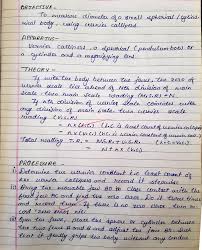 OBJECTIVE -
To measure diameter of a small spherical / cylind-
rical body, using vernier callipers
APPARATUS -
Vernier callipers, a spherical (pendulum bob) or
a cylinder and a magnifying lens
THEORY -
If with the body between the jaws, the zero of
vernier scale lies ahead of Nth division of main
scale, then main scale reading (M.S.R) = N.
If nth division of vernier scale coincides with
any division of main scale, then vernier scale
reading (V.S.R)
Total reading, T.R. = M.S.R + V.S.R
= N + n x (V.C)
PROCEDURE -
Determine the vernier constant i.e. least count of
the vernier callipers and record it stepwise
Bring the movable jaw BD in close contact with the
fixed jaw AC and find the zero error. Do it three times
and record them. If there is no zero error, then
record 'zero error nil'
Open the jaws, place the sphere or cylinder between
the two jaws A and B and adjust the jaw
it gently grips the body without any undue